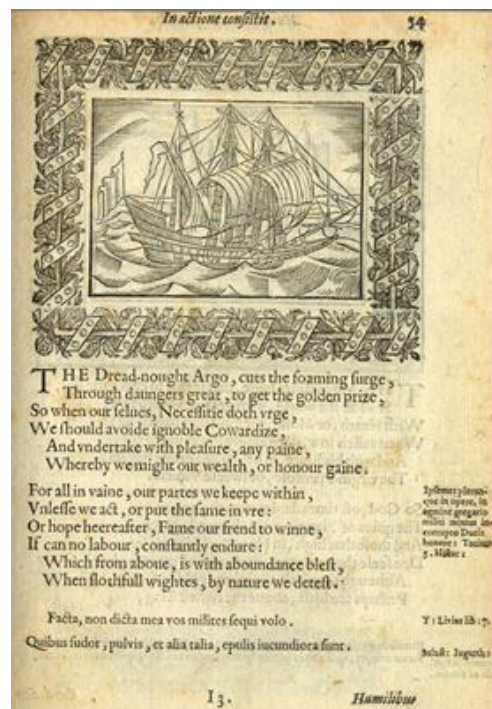 In actione consistit.
54
THE Dread-nought Argo, cuts the foaming surge,
Through daungers great, to get the golden prize,
So when our selues, Necessitie doth vrge,
We should avoide ignoble Cowardize,
And vndertake with pleasure, any paine,
Whereby we might our wealth, or honour gaine.
For all in vaine, our partes we keepe within,
Vnlesse we act, or put the same in vre:
Or hope heereafter, Fame our frend to winne,
If can no labour, constantly endure:
Which from aboue, is with aboundance blest,
When slothfull wightes, by nature we detest.
Ipsemet plerum-
que in opere, in
agmine gregario
militi mixtus in-
corrupto Ducis
honore: Tacitus
5. Histor:
Facta, non dicta mea vos milites sequi volo.
Y: Livius lib: 7.
Quibus sudor, pulvis, et alia talia, epulis iucundiora sunt.
Salust: Iugurth:
I3.
Humilibus